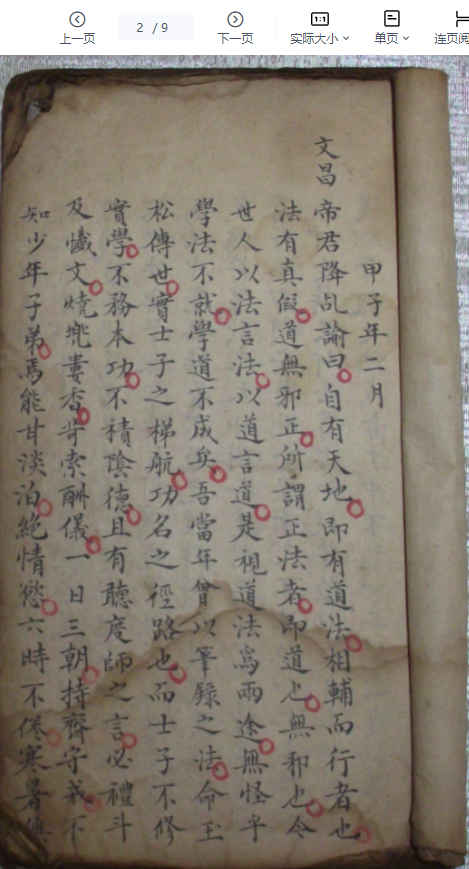 2 / 9
1:1
上一页
下一页
实际大小
单页
连页阅
甲子年二月
文昌帝君降乩諭曰自有天地即有道法相輔而行者也
法有真假道無邪正所謂正法者即道也無邪也今
世人以法言法以道言道是視道法為兩途無怪乎
學法不就學道不成矣吾當年曾以筆錄之法命玉
松傳世實士子之梯航功名之徑路也而士子不修
實學不務本功不積陰德且有聽度師之言必禮斗
及懺文燒兠婁香苛索酬儀一日三朝持齊守戒不
知少年子弟焉能甘淡泊絕情慾六時不倦寒暑